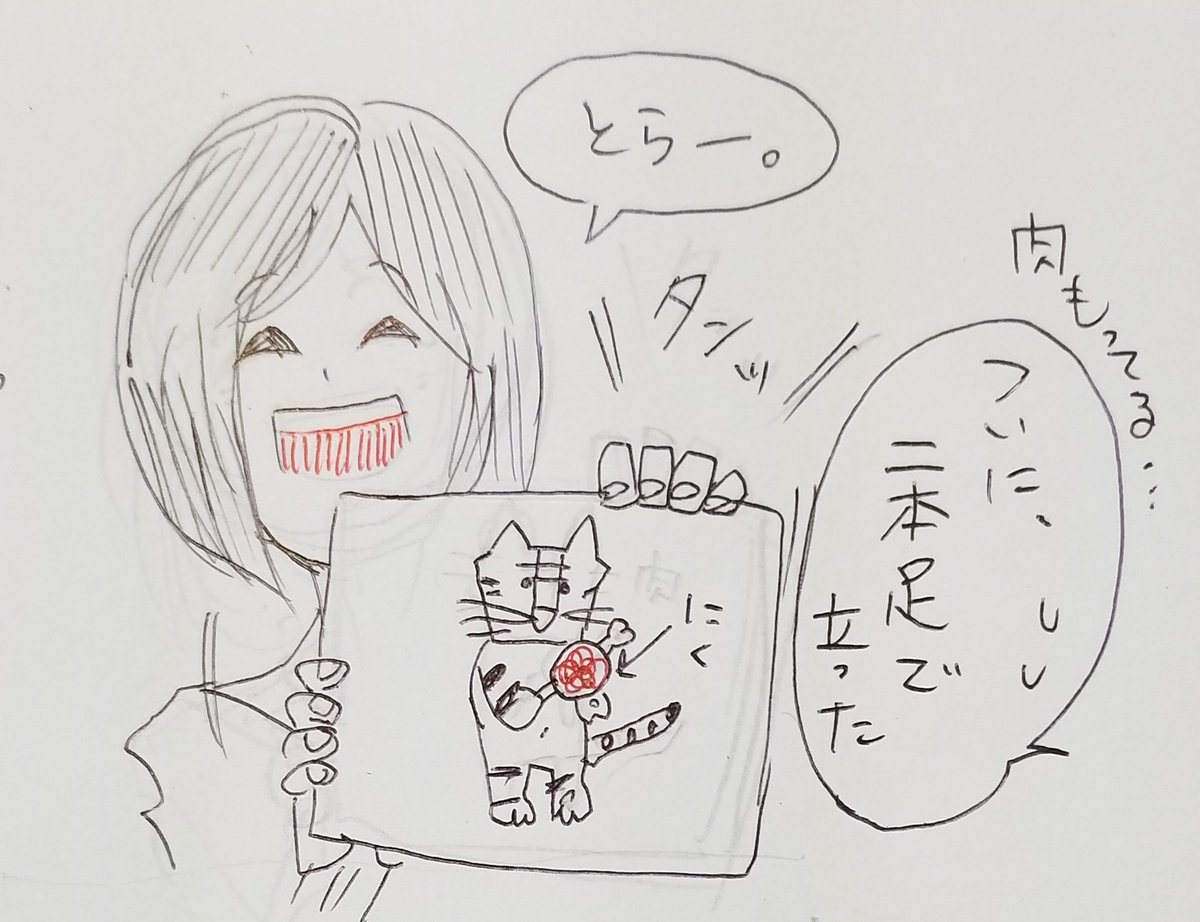 とらー。
タンッ
肉もってる…
ついに、
二本足で
立った
にく